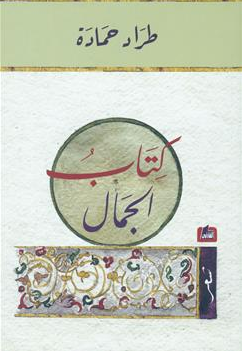 طراد حمادة
كِتَابُ
الجمال
شعر